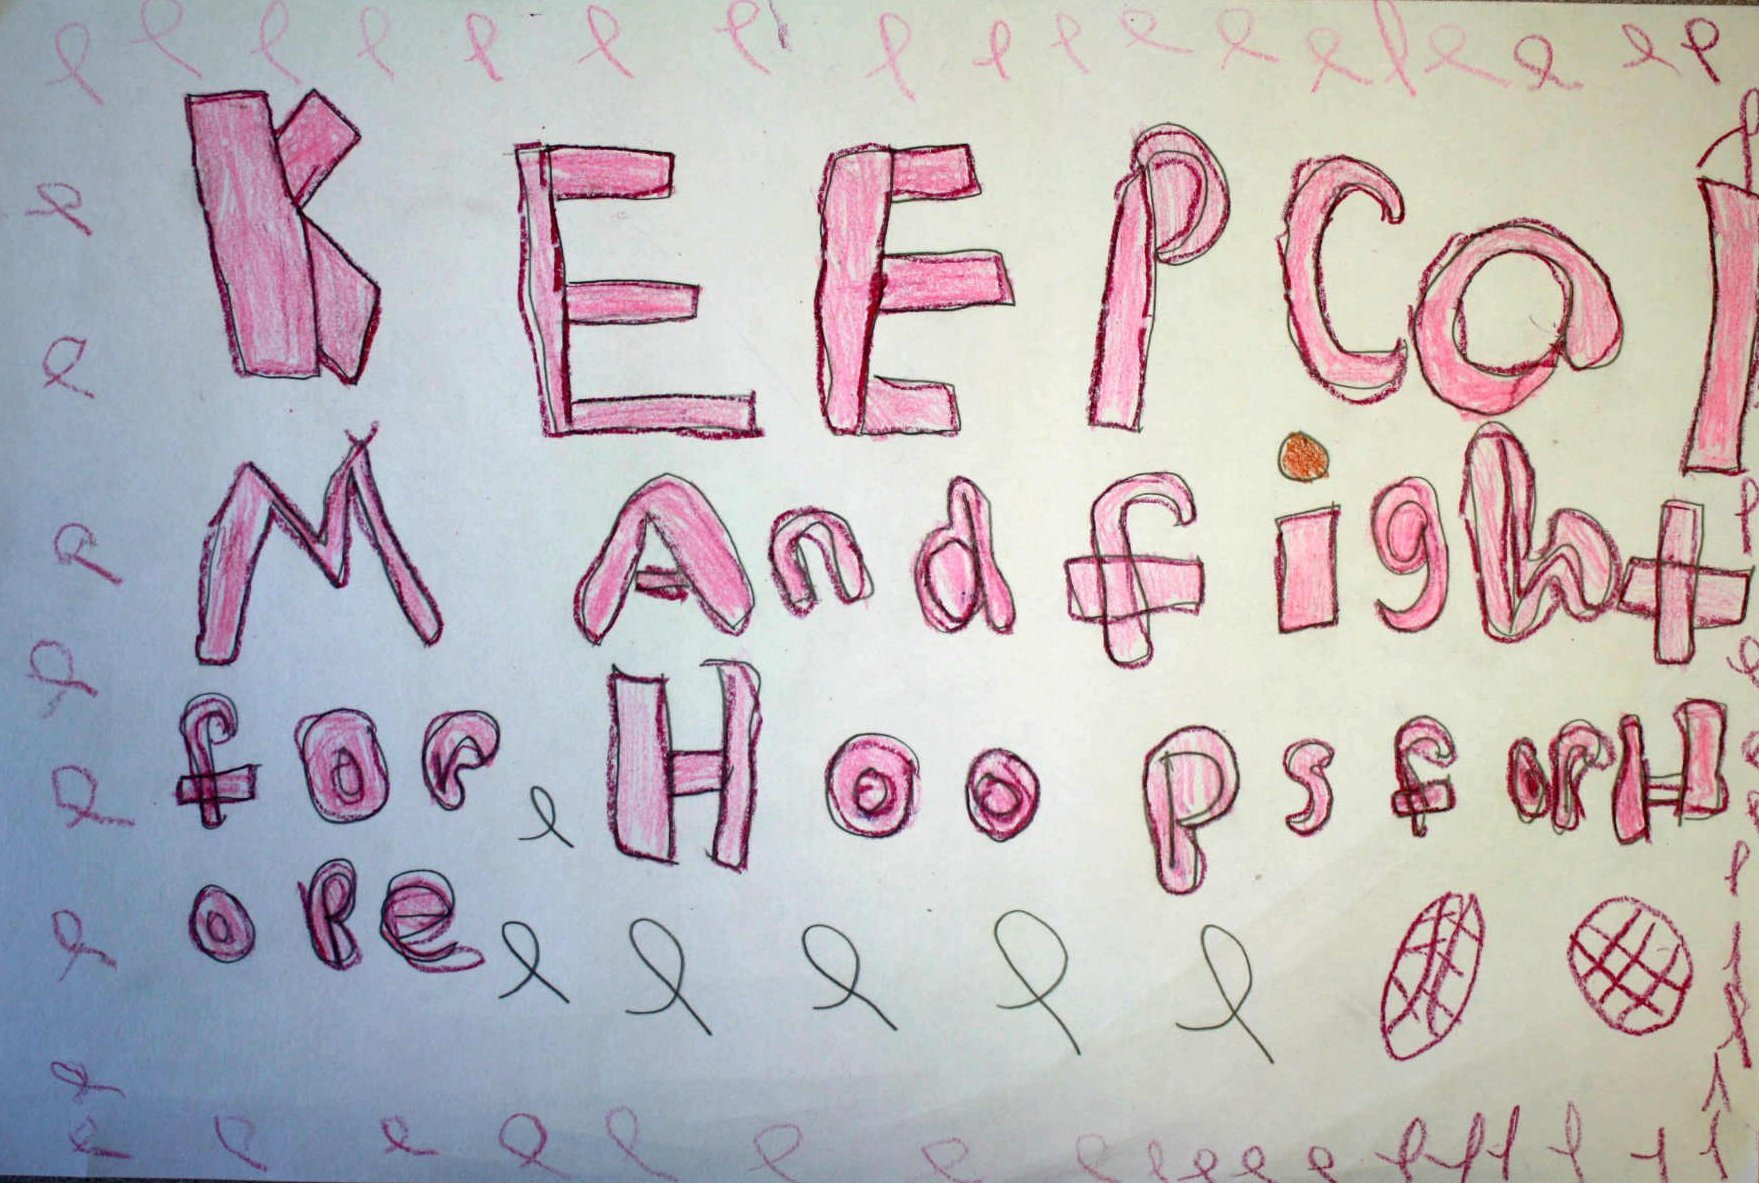 KEEP Cal
M And fight
for Hoops for H
ope